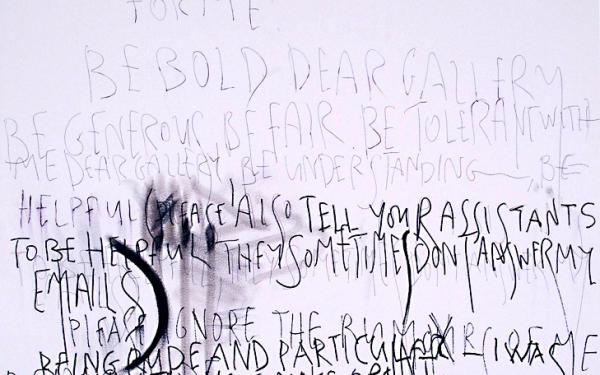 FOR ME
BE BOLD DEAR GALLERY
BE GENEROUS BE FAIR BE TOLERANT WITH
ME DEAR GALLERY BE UNDERSTANDING BE
HELPFUL PLEASE ALSO TELL YOUR ASSISTANTS
TO BE HELPFUL THEY SOMETIMES DON'T ANSWER MY
EMAILS
PLEASE IGNORE THE OF ME
BEING RUDE AND PARTICULAR